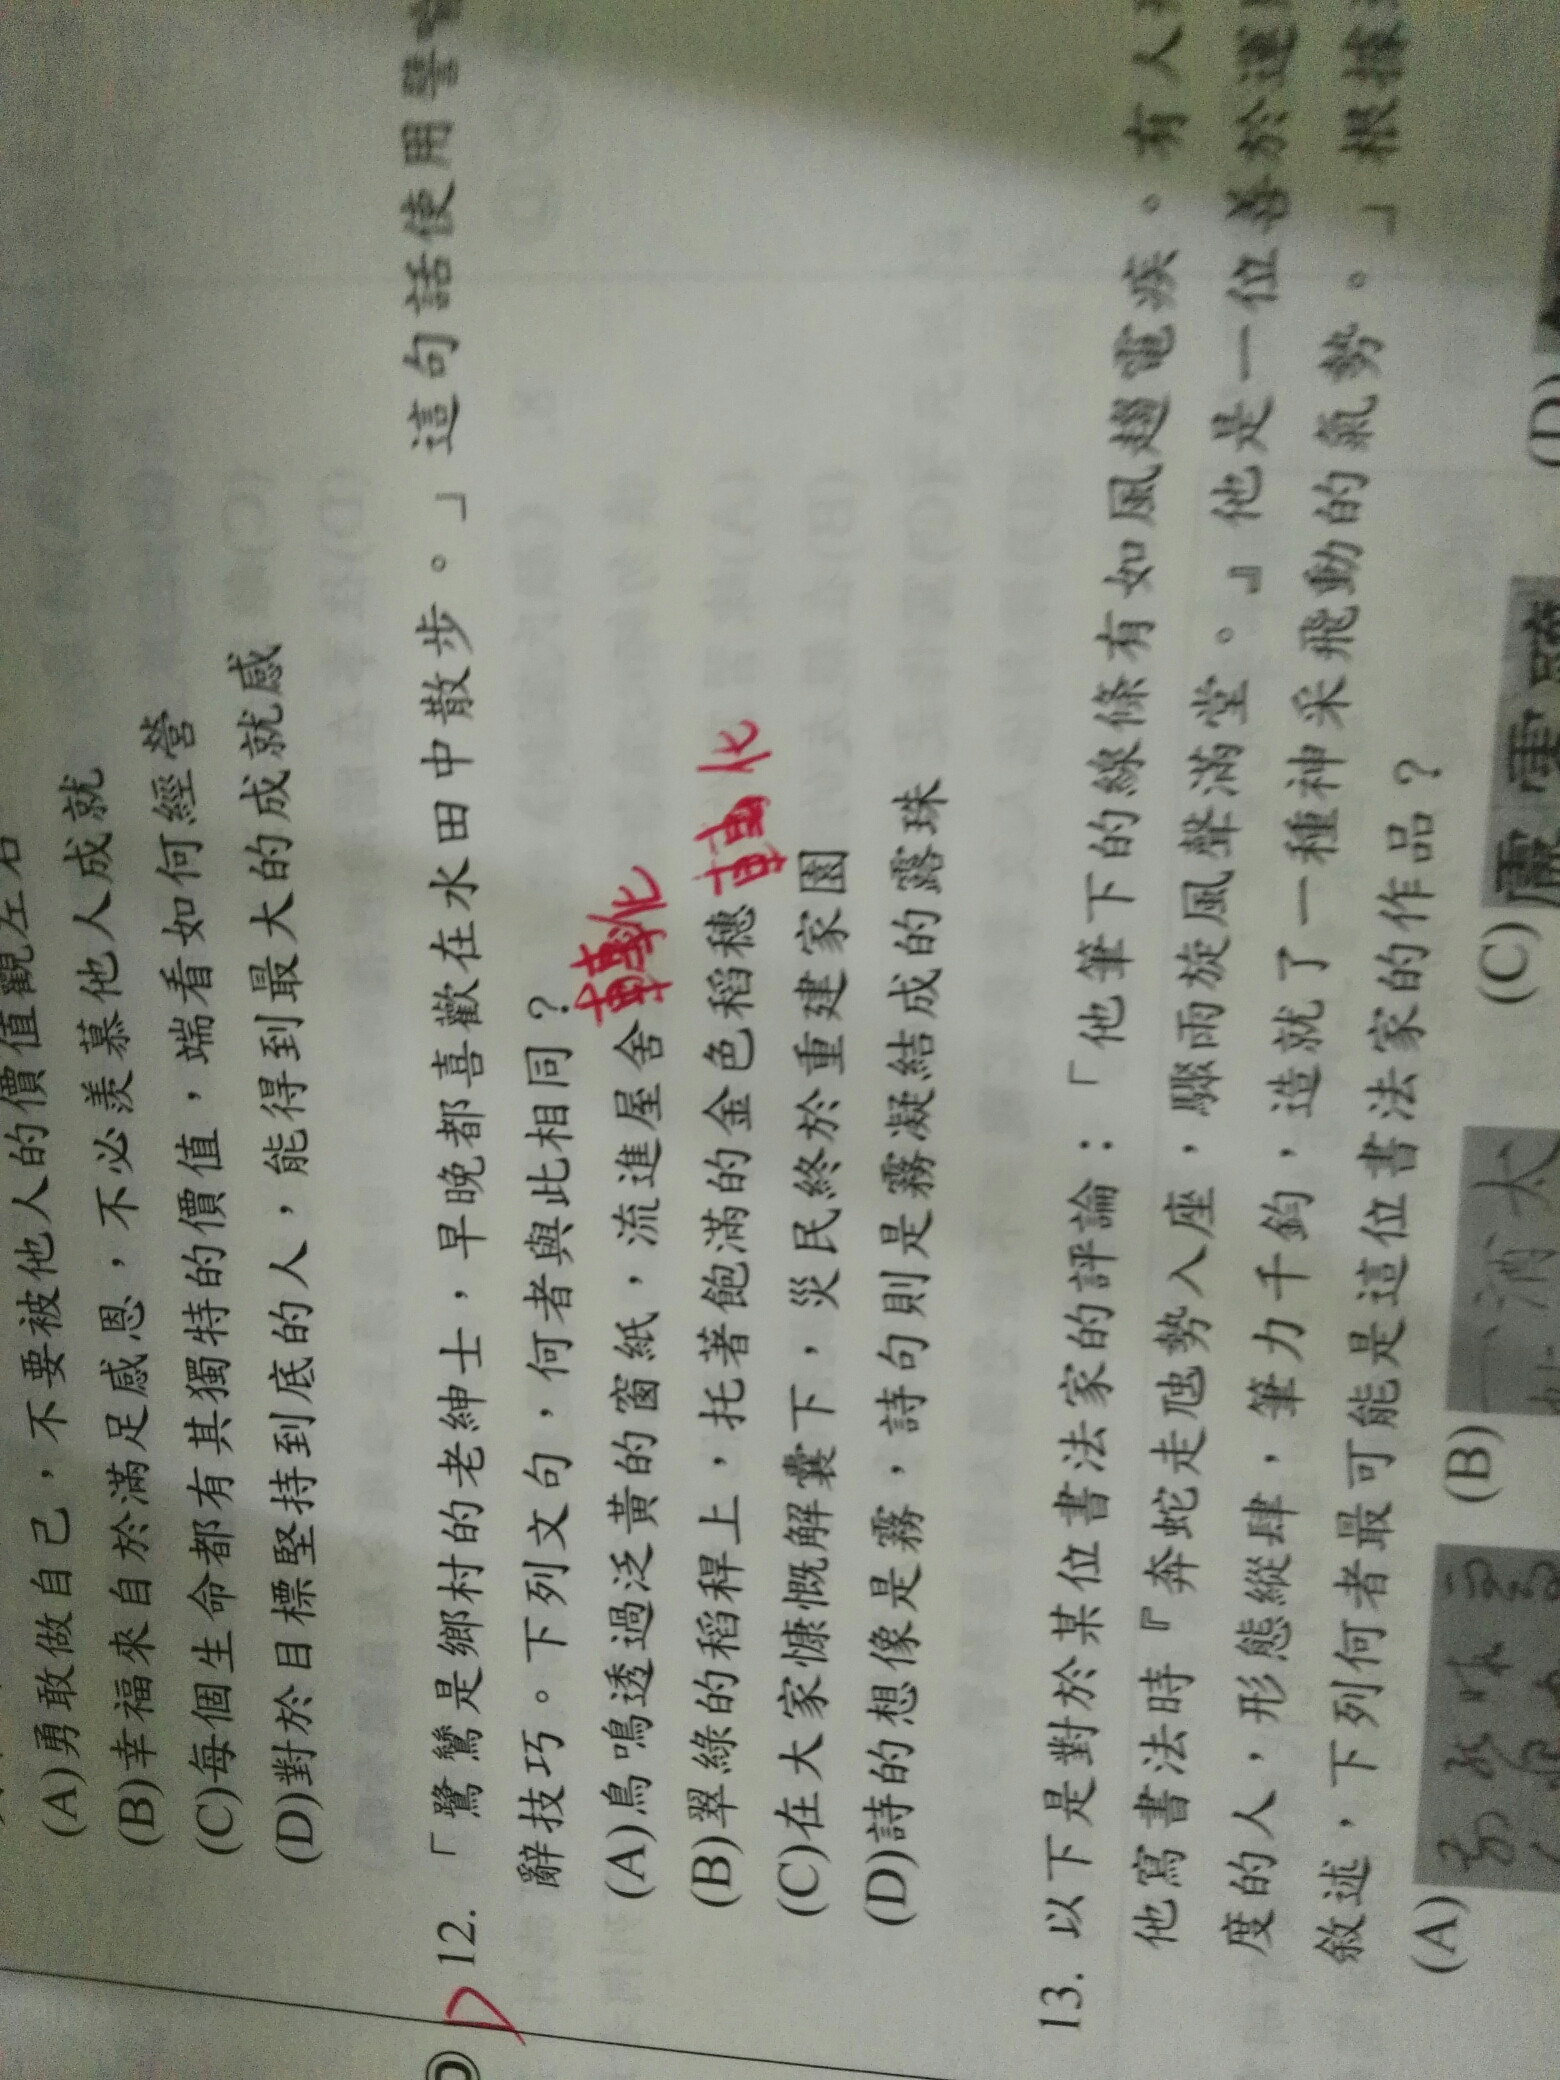 人的價值觀左右
(A)勇敢做自己，不要被他人的價值觀左右
(B)幸福來自於滿足感恩，不必羨慕他人成就
(C)每個生命都有其獨特的價值，端看如何經營
(D)對於目標堅持到底的人，能得到最大的成就感
D 12.「鷺鷥是鄉村的老紳士，早晚都喜歡在水田中散步。」這句話使用譬
辭技巧。下列文句，何者與此相同？
(A)鳥鳴透過泛黃的窗紙，流進屋舍 轉化
(B)翠綠的稻稈上，托著飽滿的金色稻穗 轉化
(C)在大家慷慨解囊下，災民終於重建家園
(D)詩的想像是霧，詩句則是霧凝結成的露珠
13. 以下是對於某位書法家的評論：「他筆下的線條有如風趨電疾。有人
他寫書法時『奔蛇走虺勢入座，驟雨旋風聲滿堂。』他是一位善於運
度的人，形態縱肆，筆力千鈞，造就了一種神采飛動的氣勢。」根據
敘述，下列何者最可能是這位書法家的作品？
(A) (B) (C) (D)